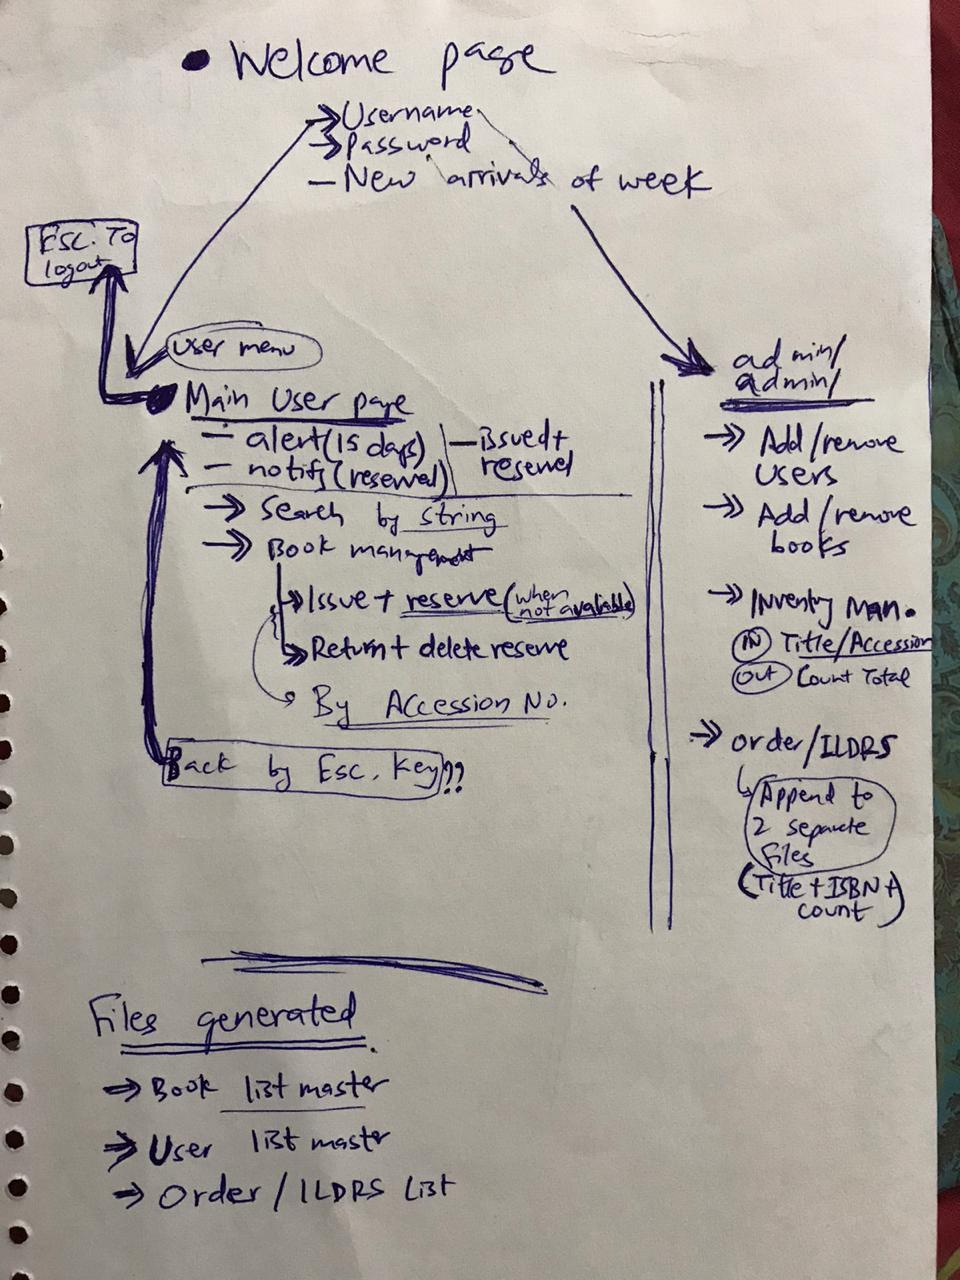 Welcome page
Username
Password
New arrivals of week
ESC. To
logout
User menu
Main User page
alert(15 days)
notify(reserved)
Issued+
reserved
Search by string
Book management
Issue + reserve (when
not avaliable)
Return + delete reserve
By Accession No.
Back by Esc. Key??
admin/
admin/
Add/remove
Users
Add/remove
books
Inventry Man.
IN Title/Accession
Out Count Total
order/ILDRS
Append to
2 separate
files
(Title + ISBN +
count)
Files generated
Book list master
User list master
Order / ILDRS List